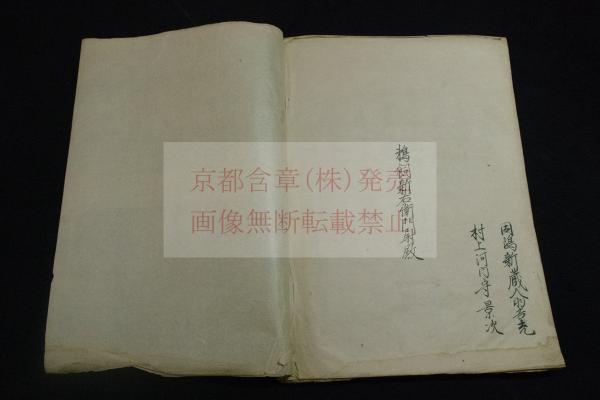 岡島新蔵人
村上河内守景次
右衛門尉殿
京都含章(株)発売
画像無断転載禁止